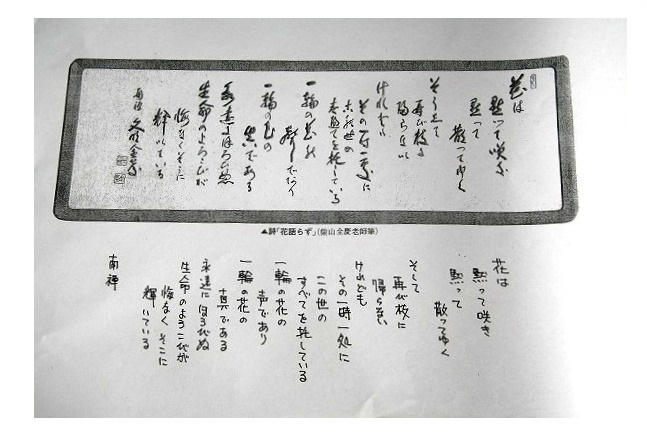 花は
黙って咲き
黙って
散ってゆく
そうして
再び枝に
帰らない
けれども
その一時一処に
この世の
すべてを托している
一輪の花の
声であり
一輪の花の
真である
永遠にほろびぬ
生命のよろこびが
悔なくそこに
輝いている
南禅
▲詩「花語らず」(柴山全慶老師筆)
花は
黙って咲き
黙って
散ってゆく
そして
再び枝に
帰らない
けれども
その一時一処に
この世の
すべてを托している
一輪の花の
声であり
一輪の花の
真である
永遠にほろびぬ
生命のようこびが
悔なくそこに
輝いている
南禅